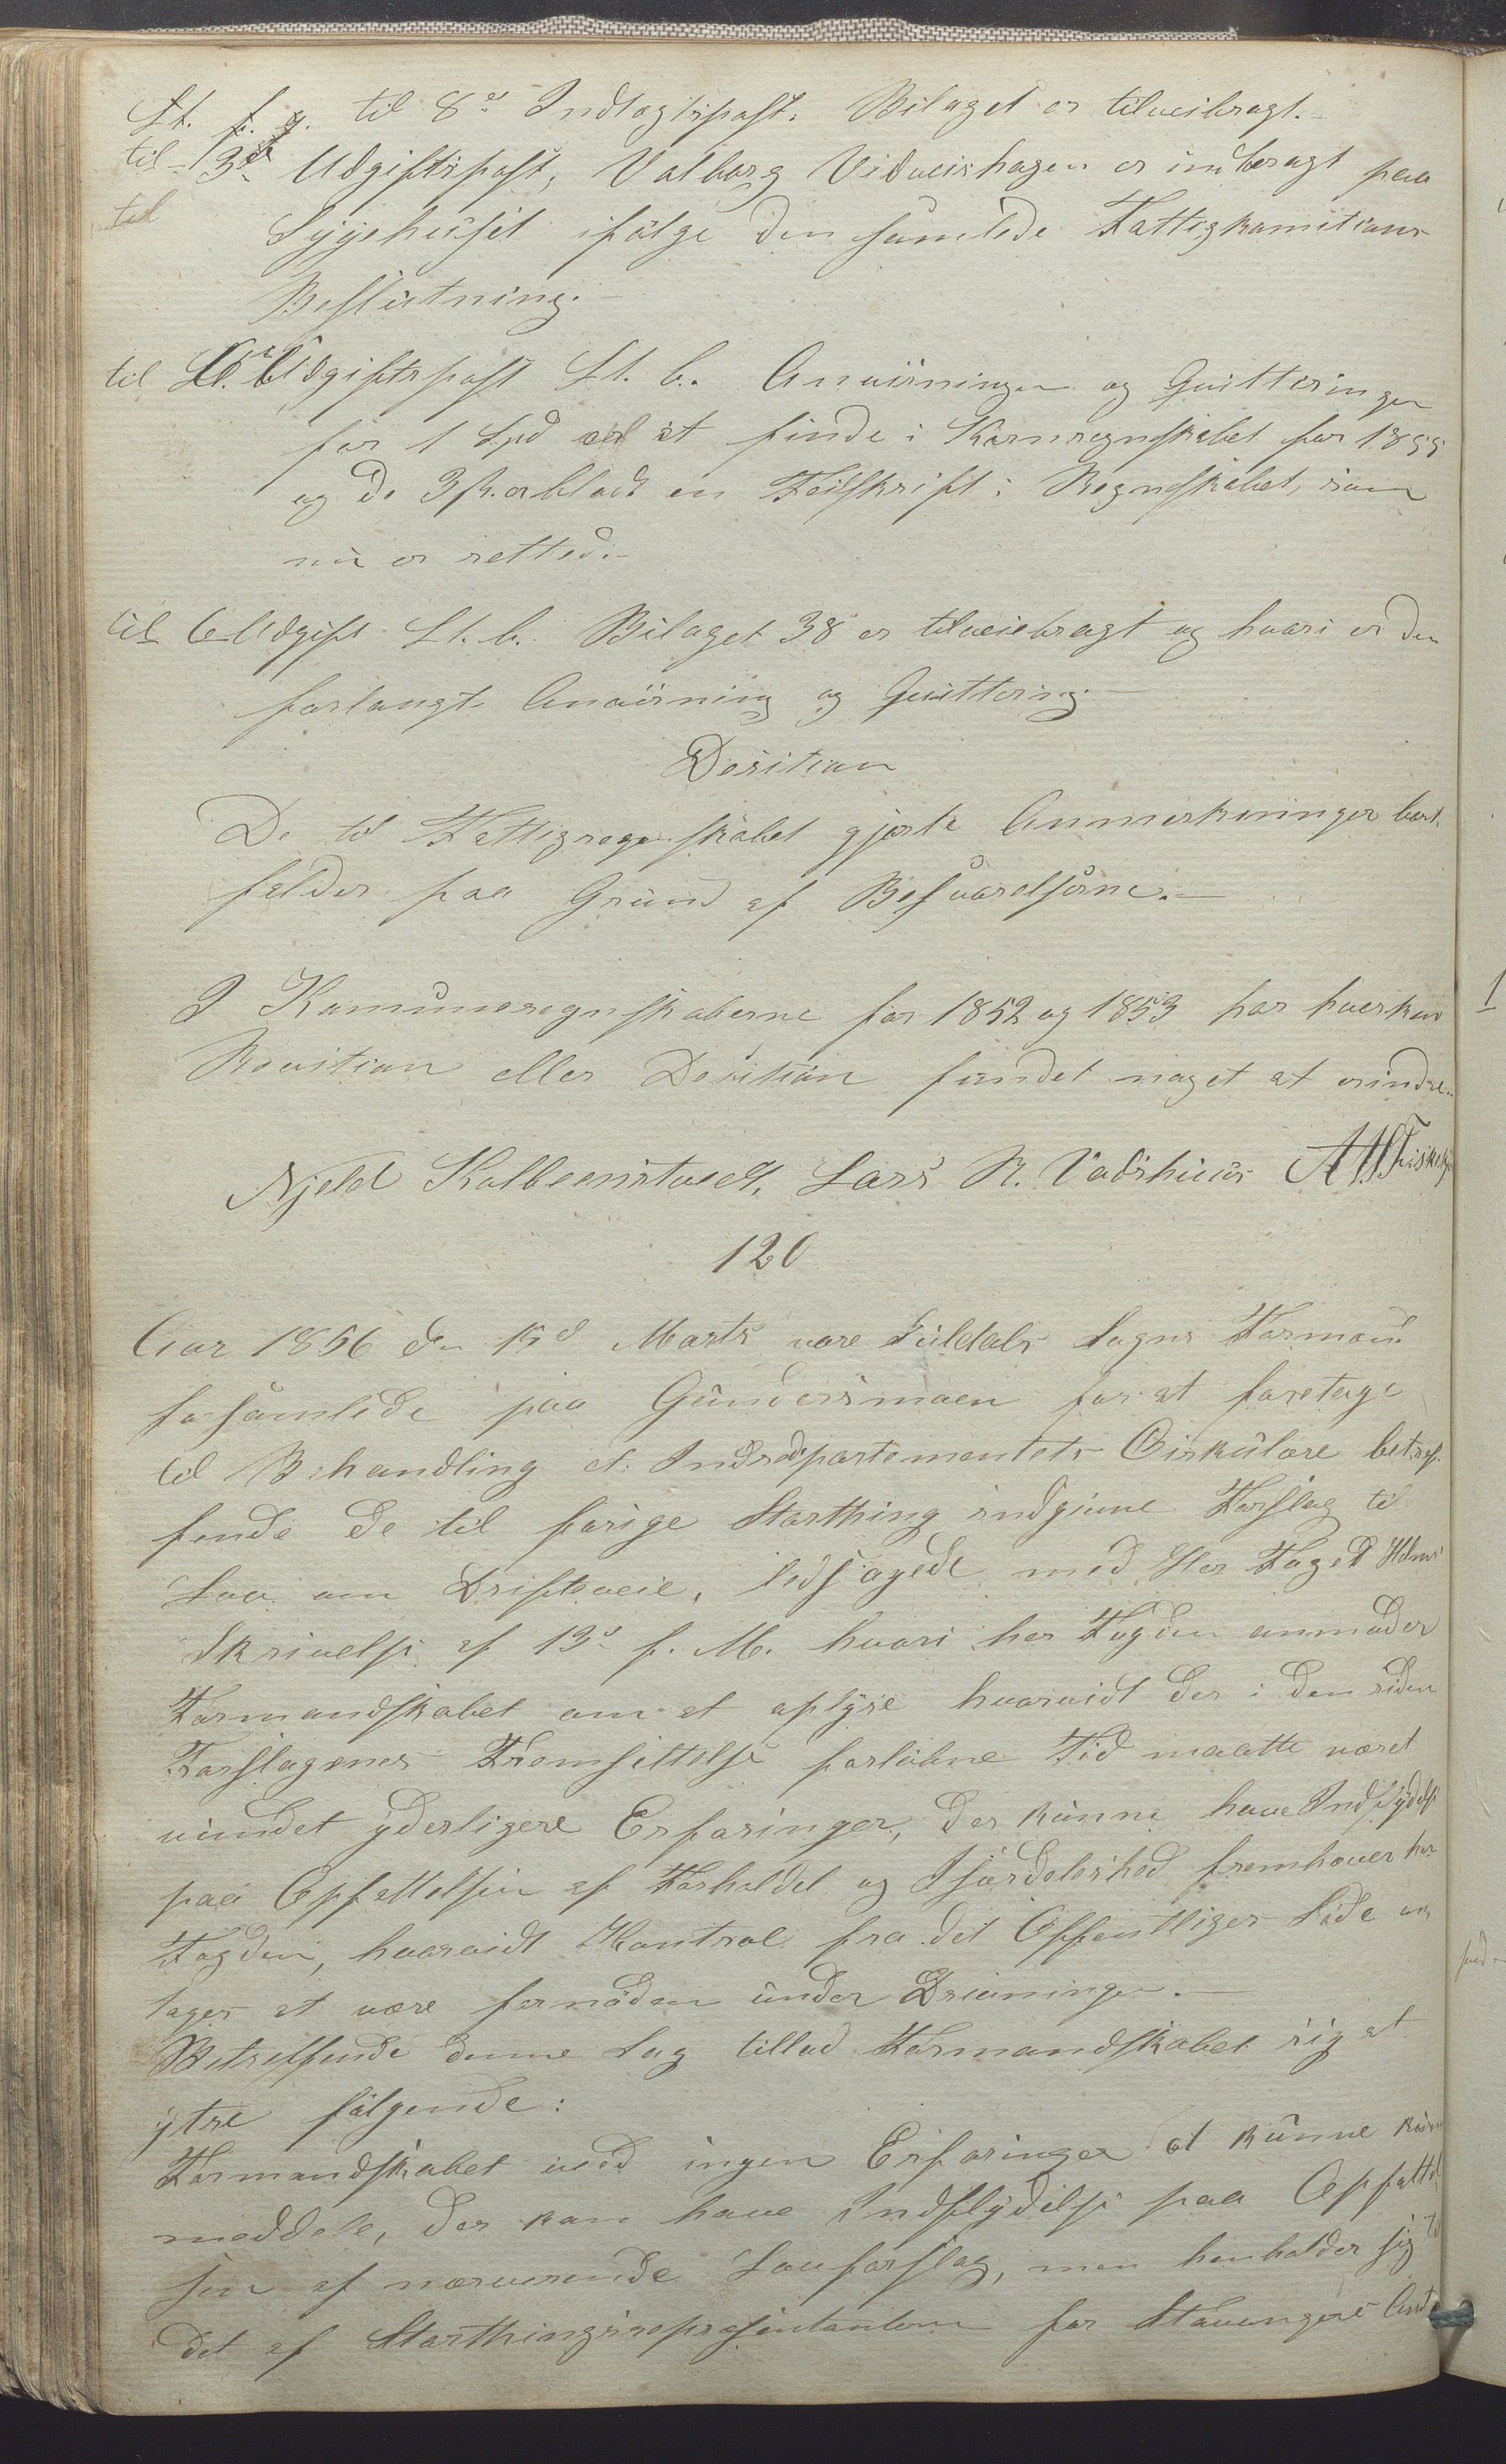 Lt. f. g. til 8de Indtægtspost. Bilaget er tilveibragt.-
til 3de Udgiftspost, Valborg Vidveishagen er indbragt paa
til
Sygehuset ifølge den samlede Fattigkomitions
Beslutning.-
til Udgiftspost Lt. b. Anvisningen og Qvitteringen
for 1 Spd er at finde i Kornregnskabet for 1855
og de 3 ß. er blodt en Feilskrift i Regnskabet, som
nu er rettet.-
til 6 Udgift Lt. b. Bilaget 38 er tilveiebragt og hvori er den
forlangte Anvisning og Qvittering.-
Desition
De til Fattigregnskabet gjorte Anmerkninger bort-
falder paa Grund af Besvarelserne.-
I Komuneregnskaberne for 1852 og 1853 har hverken
Revition eller Desition fundet noget at erindre.-
Njeld Kolbeenstvedt, Lars R. Vadshuus
120
Aar 1856 den 15d Marts vare Suldals Sogns Formænd
forsamlede paa Gundersmoen for at foretage
til Behandling et Indredepartementets Cirkulære betref-
fende de til forige Storthing indgivne Forslag til
Lov om Drifteveie, ledsagede med Her Foged Holms
Skrivelse af 13d f. M. hvori her Fogden anmoder
Formandskabet om at oplyse hvorvidt der i den siden
Forslagenes Fremsettelse forløbne Tid maatte været
vundet yderligere Erfaringer, der kunne have Indflydelse
paa Opfattelsen af Forholdet og Isærdeleshed fremhæver her
Fogden, hvorvidt Kontrol fra det Offentliges Side an-
tages at være fornøden under Drivningen.-
Betreffende denne Sag tillod Formandskabet sig at
ytre følgende:
Formandskabet ved ingen Erfaringer at kunne
meddele, der kan have Indflydelse paa Opfattel-
sen af nærværende Lovforslag, men henholder sig til
det af Storthingsrepresentanten for Stavangers Amt